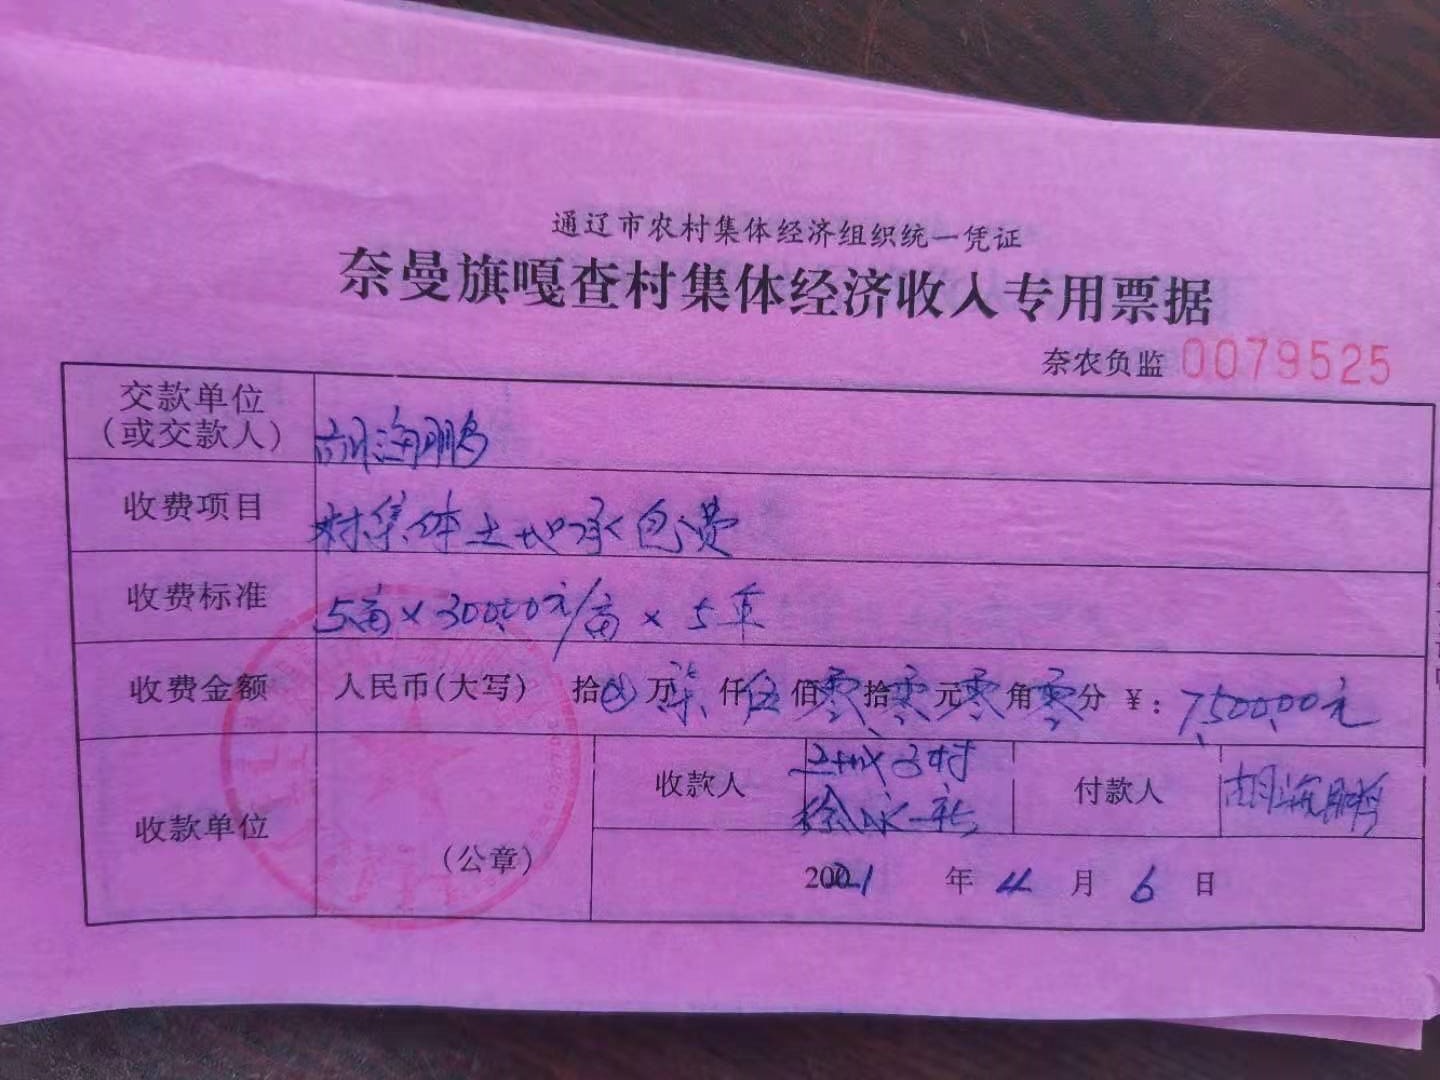 通辽市农村集体经济组织统一凭证
奈曼旗嘎查村集体经济收入专用票据
奈农负监 0079525
交款单位
(或交款人) 胡海鹏
收费项目 村集体土地承包费
收费标准 5亩×300.00元/亩×5年
收费金额 人民币(大写) 拾⊗万柒仟伍佰零拾零元零角零分 ¥:7,500.00元
收款单位 (公章)
收款人 徐永新
付款人 胡海鹏
2021年4月6日